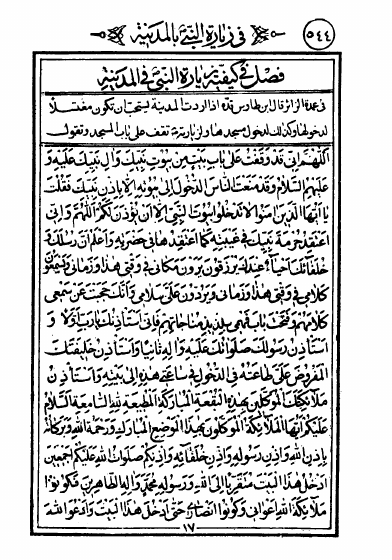 في زيارة النبي بالمدينة
٥٤٤
فصل في كيفية زيارة النبي في المدينة
في عمدة الزائر قال ابن طاوس قده اذا اردت المدينة يستحب ان تكون مغتسلا
لدخولها وكذلك لدخول مسجدها ولزيارته تقف على باب المسجد وتقول
اللهم اني قد وقفت على باب بيت من بيوت نبيك وال نبيك عليه و
عليهم السلام وقد منعت الناس الدخول الى بيوته الا باذن نبيك فقلت
يا ايها الذين امنوا لا تدخلوا بيوت النبي الا ان يؤذن لكم اللهم واني
اعتقد حرمة نبيك في غيبته كما اعتقدها في حضرته واعلم ان رسلك و
خلفائك احياء عندك يرزقون يرون مكاني في وقتي هذا وزماني ويسمعون
كلامي في وقتي هذا وزماني ويردون علي سلامي وانك حجبت عن سمعي
كلامهم وفتحت باب فهمي بلذيذ مناجاتهم فاني استاذنك يا رب اولا و
استاذن رسولك صلواتك عليه واله ثانيا واستاذن خليفتك
المفروض علي طاعته في الدخول في ساعتي هذه الى بيته واستاذن
ملائكتك الموكلين بهذه البقعة المباركة المطيعة لله السامعة السلام
عليكم ايها الملائكة الموكلون بهذا الموضع المبارك ورحمة الله وبركاته
باذن الله واذن رسوله واذن خلفائه واذنكم صلوات الله عليكم اجمعين
ادخل هذا البيت متقربا الى الله ورسوله محمد واله الطاهرين فكونوا
ملائكة الله اعواني وكونوا انصاري حتى ادخل هذا البيت وادعو الله
١٧